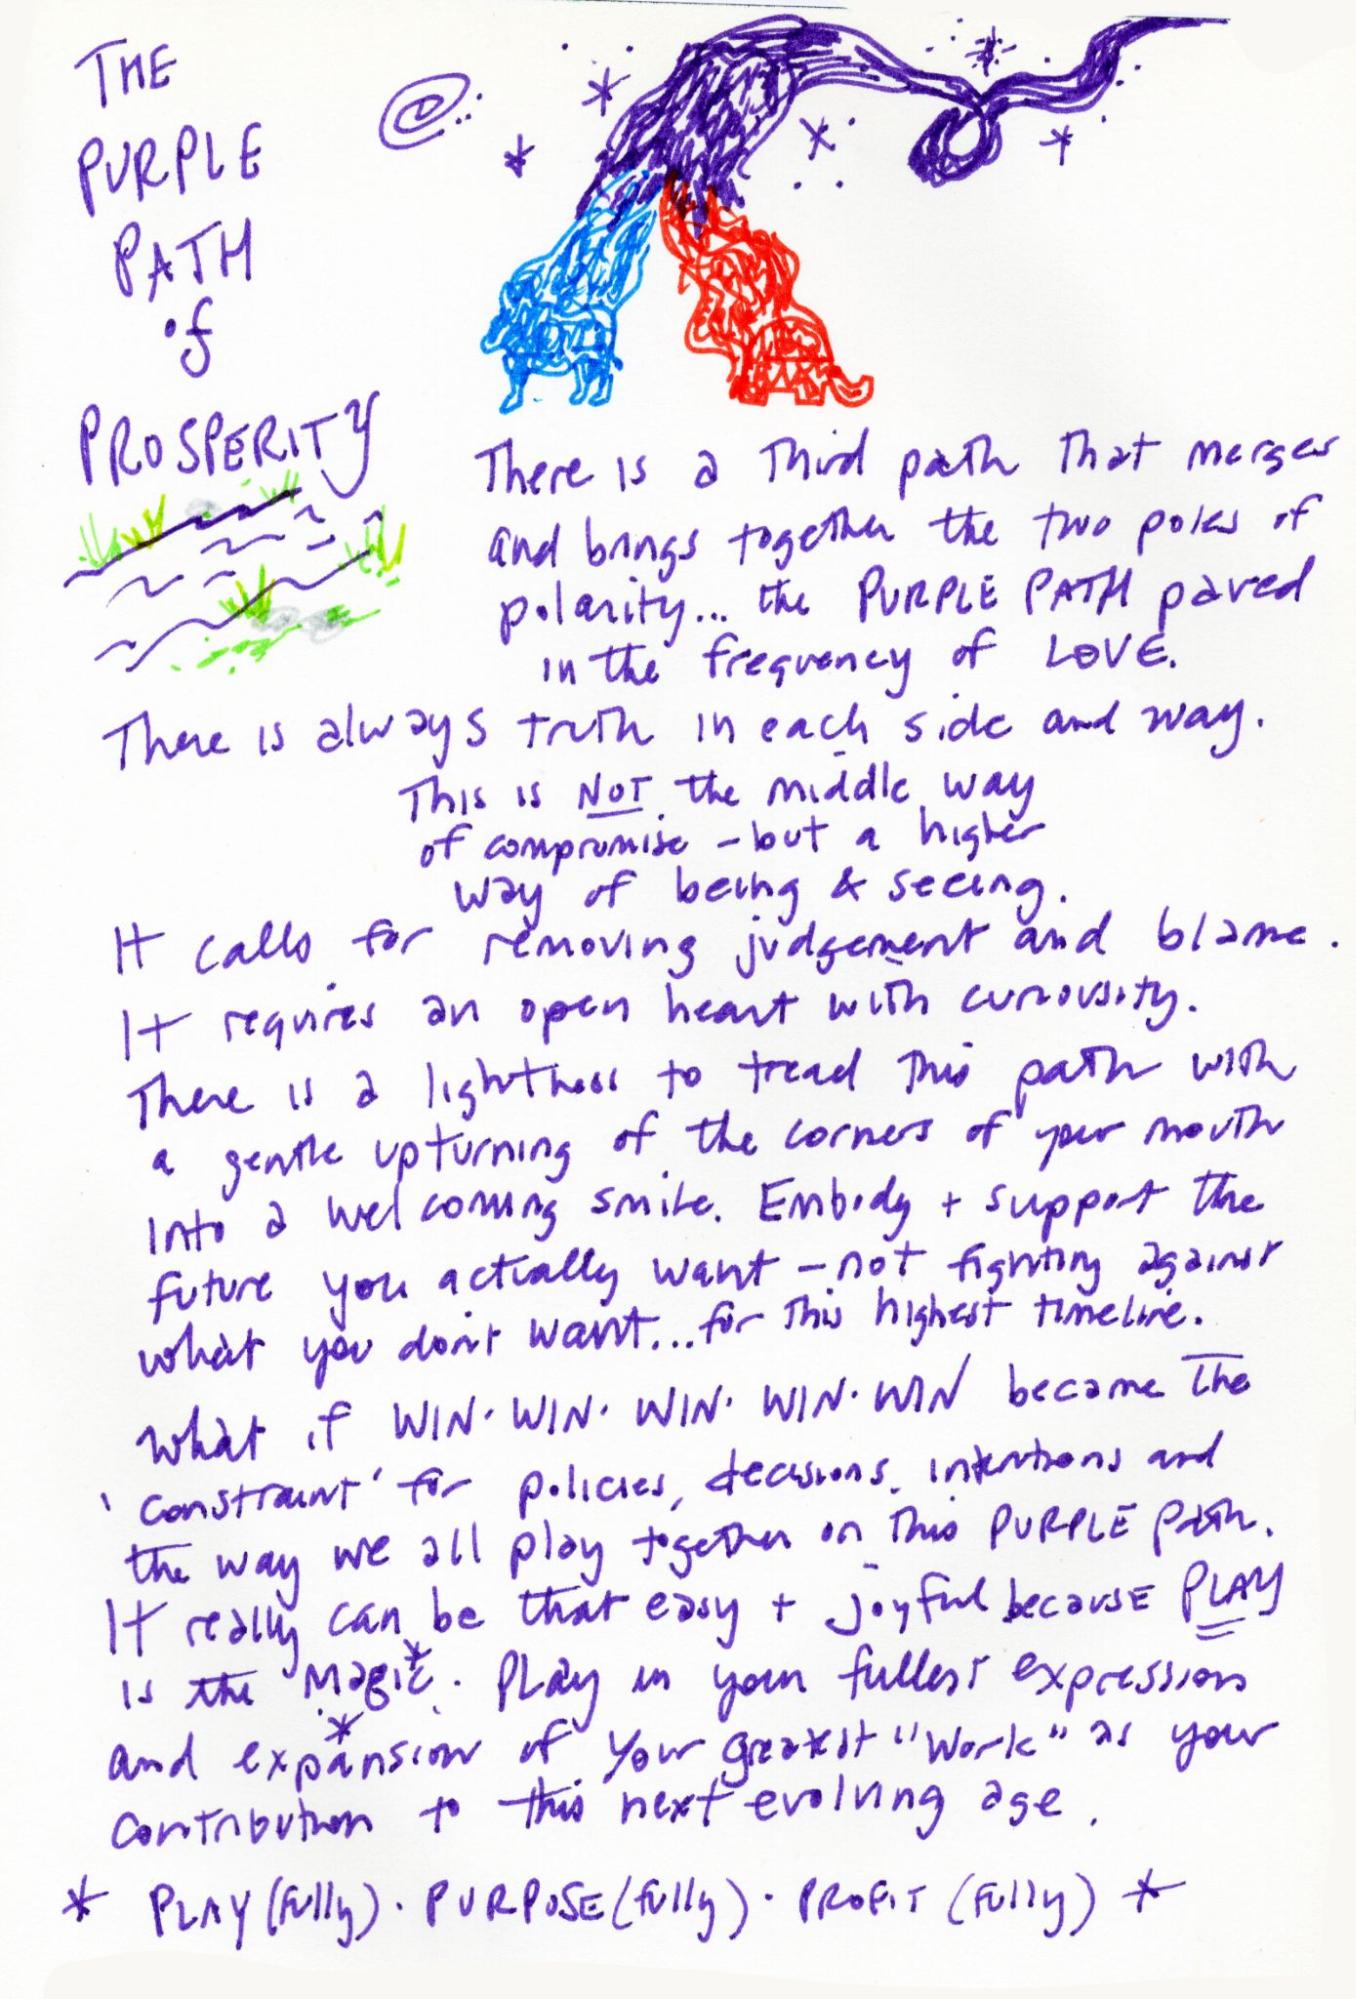 THE
PURPLE
PATH
of
PROSPERITY
There is a third path that merges
and brings together the two poles of
polarity... the PURPLE PATH paved
in the frequency of LOVE.
There is always truth in each side and way.
This is NOT the middle way
of compromise - but a higher
way of being & seeing.
It calls for removing judgement and blame.
It requires an open heart with curiousity.
There is a lightness to tread this path with
a gentle upturning of the corners of your mouth
into a welcoming smile. Embody + support the
future you actually want - not fighting against
what you don't want... for this highest timeline.
What if WIN. WIN. WIN. WIN. WIN became the
'constraint' for policies, decisions, intentions and
the way we all play together on this PURPLE Path.
It really can be that easy + joyful because PLAY
is the Magic*. Play in your fullest expression
and expansion of your greatest "Work" as your
contribution to this next evolving age.
* PLAY (fully) . PURPOSE (fully) . PROFIT (fully) *